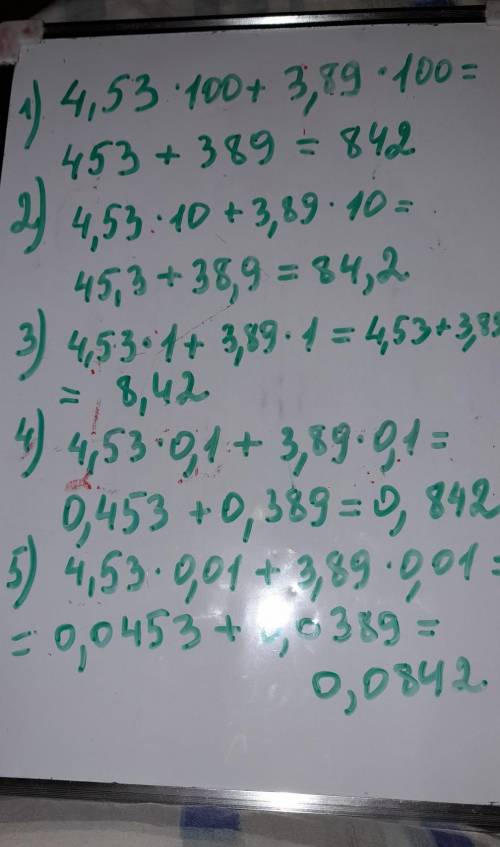 1) 4,53·100+ 3,89·100=
453 + 389 = 842
2) 4,53·10 +3,89·10=
45,3+38,9=84,2
3) 4,53·1+ 3,89·1 = 4,53+3,89
= 8,42
4) 4,53·0,1 + 3,89·0,1=
0,453 +0,389=0,842
5) 4,53·0,01+3,89·0,01=
= 0,0453+0,0389=
0,0842